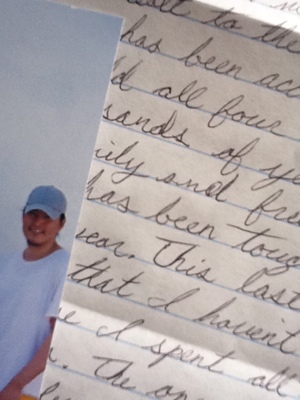 to the
has been acc
all four
sands of ye
ily and fri
has been toug
year. This last
that I havent
I spent all
. The on